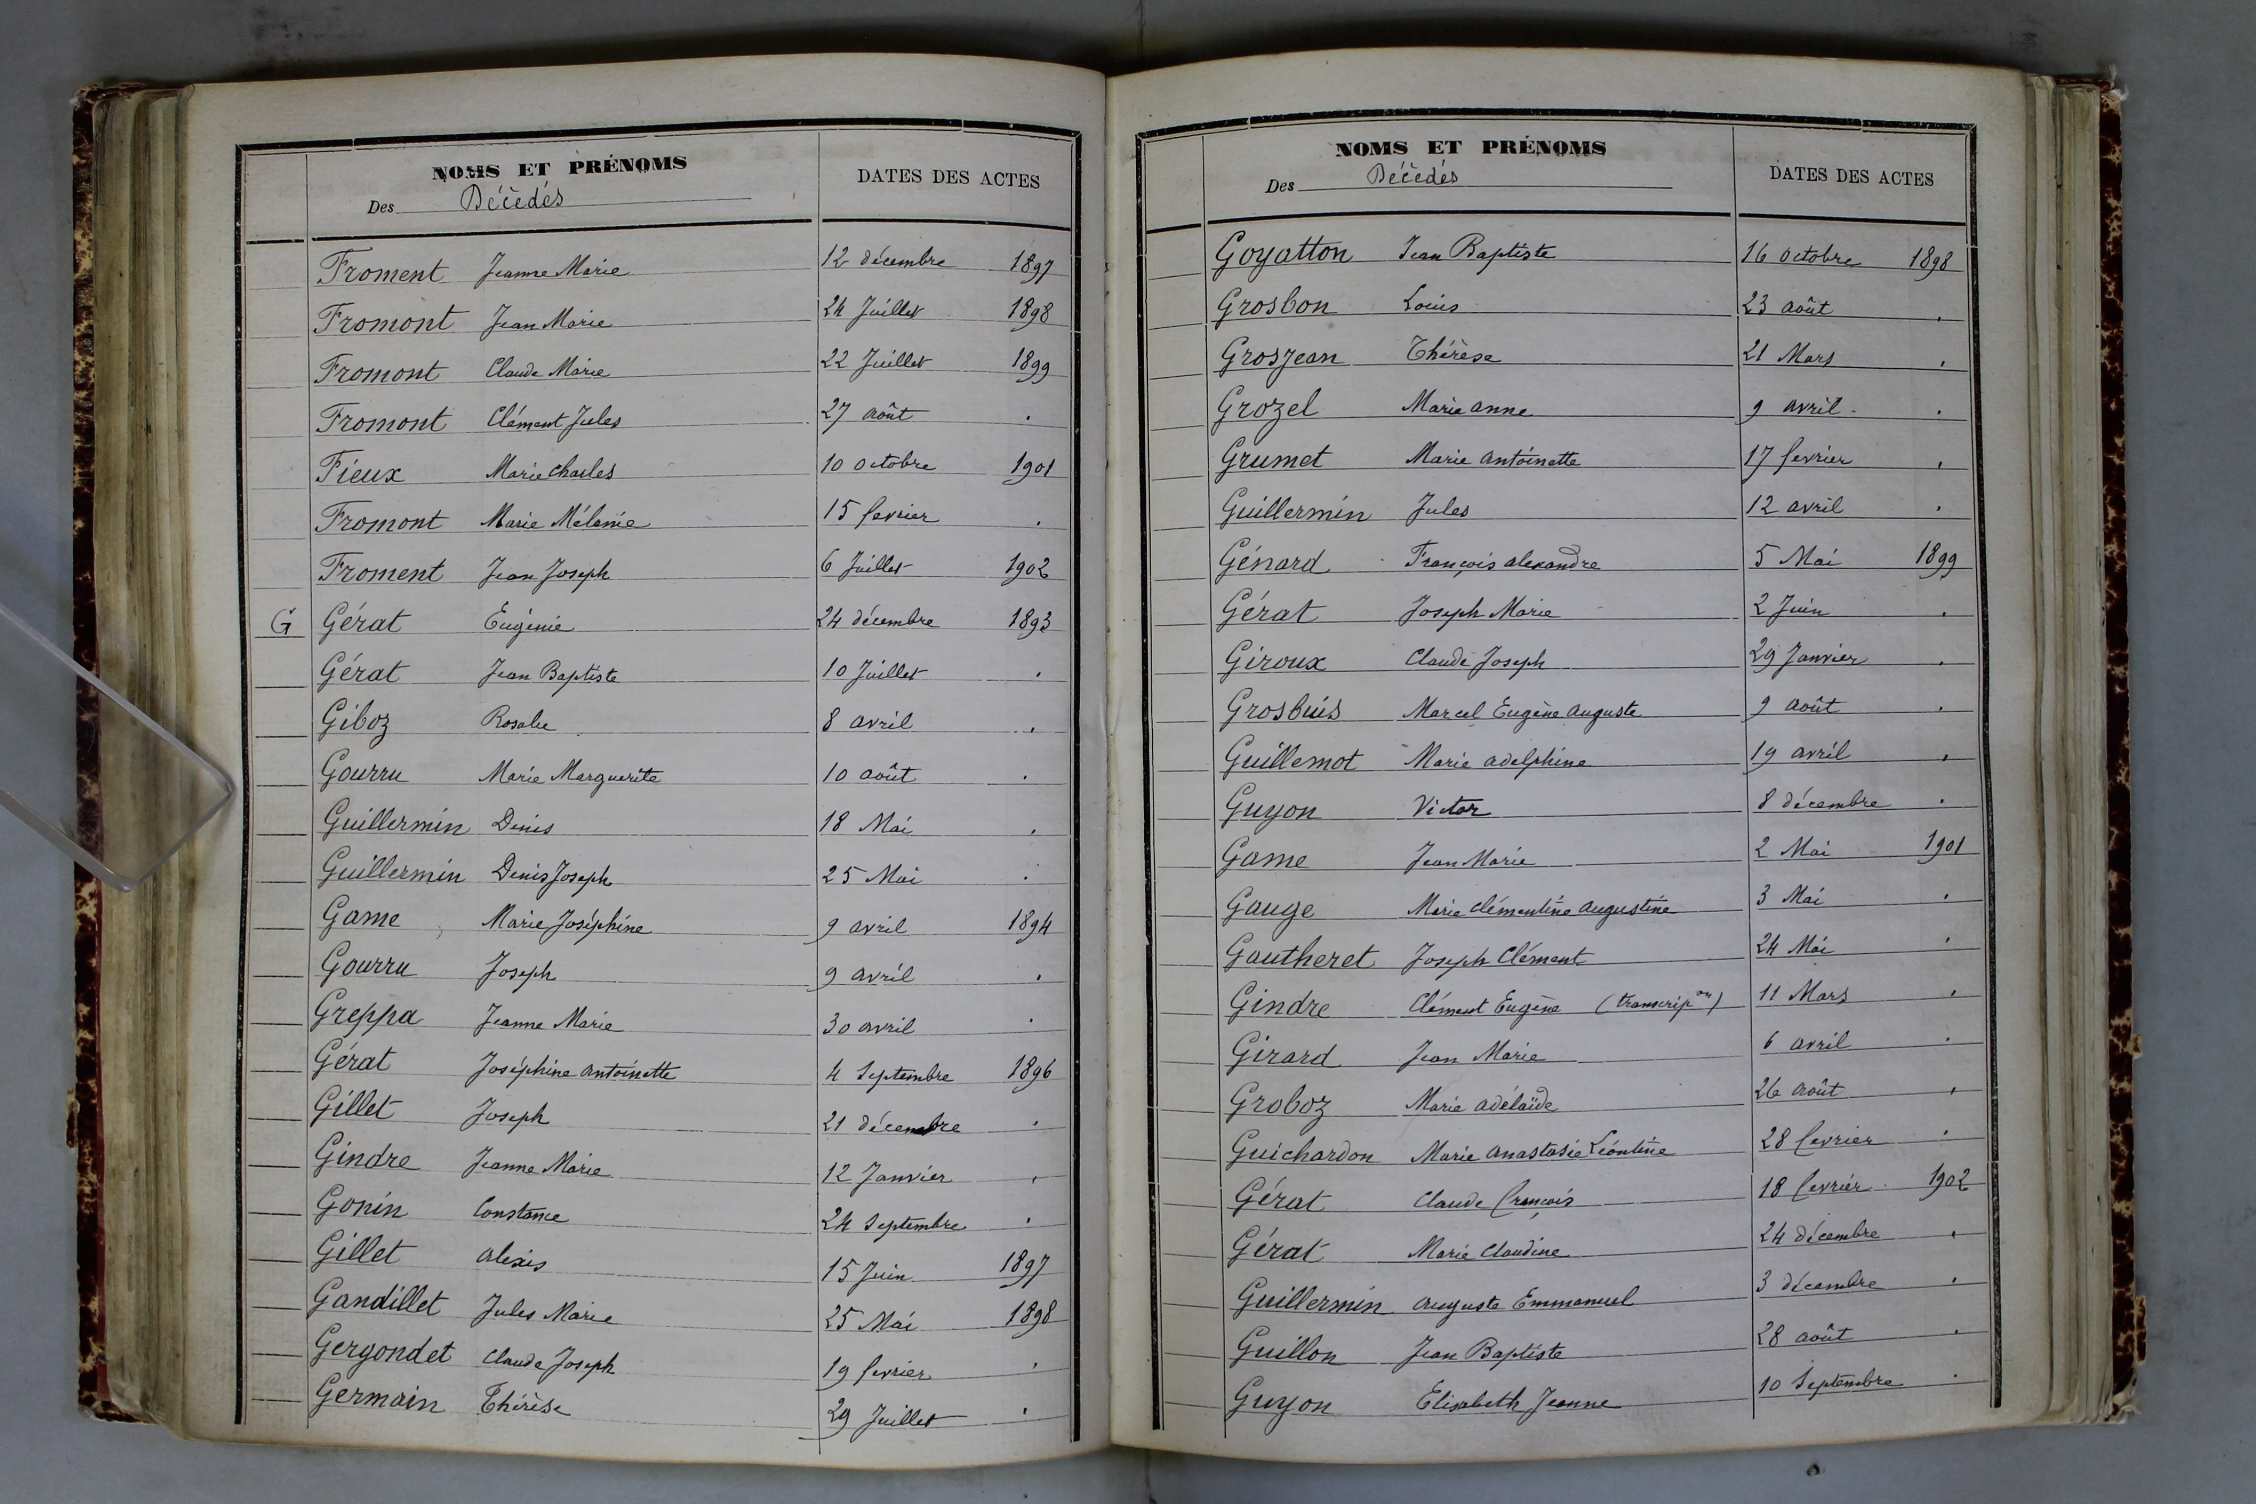 NOMS ET PRÉNOMS
Des Décédés
DATES DES ACTES
Froment Jeanne Marie 12 décembre 1897
Fromont Jean Marie 24 Juillet 1898
Fromont Claude Marie 22 Juillet 1899
Fromont Clément Jules 27 août .
Fieux Marie Charles 10 octobre 1901
Fromont Marie Mélanie 15 fevrier .
Froment Jean Joseph 6 Juillet 1902
G Gérat Eugénie 24 décembre 1893
Gérat Jean Baptiste 10 Juillet .
Giboz Rosalie 8 avril .
Gourru Marie Marguerite 10 août .
Guillermin Denis 18 Mai .
Guillermin Denis Joseph 25 Mai .
Game Marie Joséphine 9 avril 1894
Gourru Joseph 9 avril .
Greppa Jeanne Marie 30 avril .
Gérat Joséphine antoinette 4 Septembre 1896
Gillet Joseph 21 décembre .
Gindre Jeanne Marie 12 Janvier .
Gonin Constance 24 Septembre .
Gillet alexis 15 Juin 1897
Gandillet Jules Marie 25 Mai 1898
Gergondet Claude Joseph 19 fevrier .
Germain Thérèse 29 Juillet .
NOMS ET PRÉNOMS
Des Décédés
DATES DES ACTES
Goyatton Jean Baptiste 16 octobre 1898
Grosbon Louis 23 août .
Grosjean Thérèse 21 Mars .
Grozel Marie anne 9 avril .
Grumet Marie antoinette 17 fevrier .
Guillermin Jules 12 avril .
Génard François alexandre 5 Mai 1899
Gérat Joseph Marie 2 Juin .
Giroux Claude Joseph 29 Janvier .
Grosbuis Marcel Eugène auguste 9 août .
Guillemot Marie adelphine 19 avril .
Guyon Victor 8 décembre .
Game Jean Marie 2 Mai 1901
Gauge Marie Clémentine augustine 3 Mai .
Gautheret Joseph Clément 24 Mai .
Gindre Clément Eugène (transcripon) 11 Mars .
Girard Jean Marie 6 avril .
Groboz Marie adélaïde 26 août .
Guichardon Marie anastasie Léontine 28 fevrier .
Gérat Claude françois 18 fevrier 1902
Gérat Marie Claudine 24 décembre .
Guillermin auguste Emmanuel 3 décembre .
Guillon Jean Baptiste 28 août .
Guyon Elisabeth Jeanne 10 Septembre .